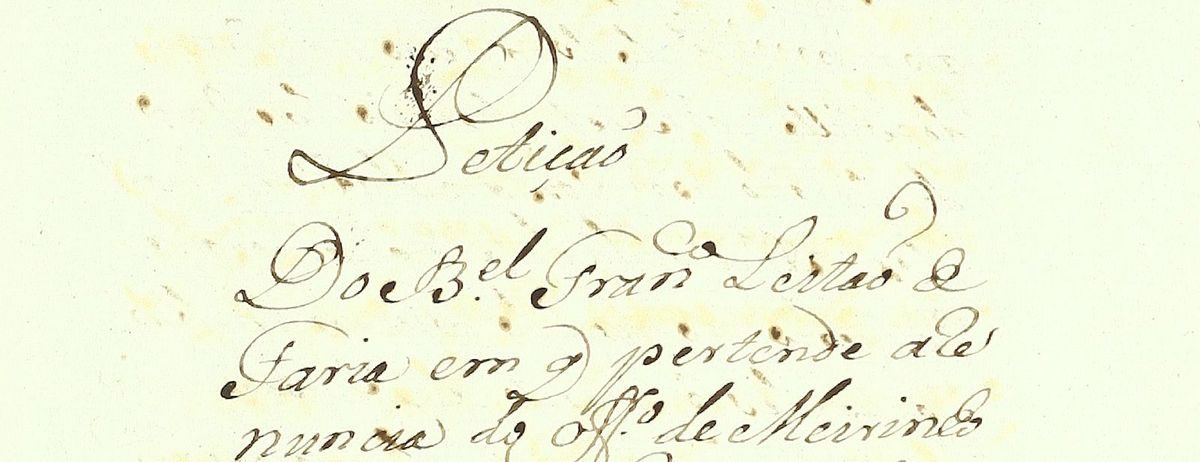 Petição
Do B.el Franco Leitão de
Faria em q pertende a Re
nuncia do Offo. de Meirinho